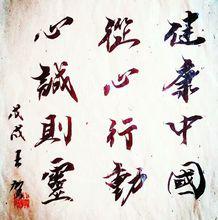 健康中國
從心行動
心誠則靈
戊戌王